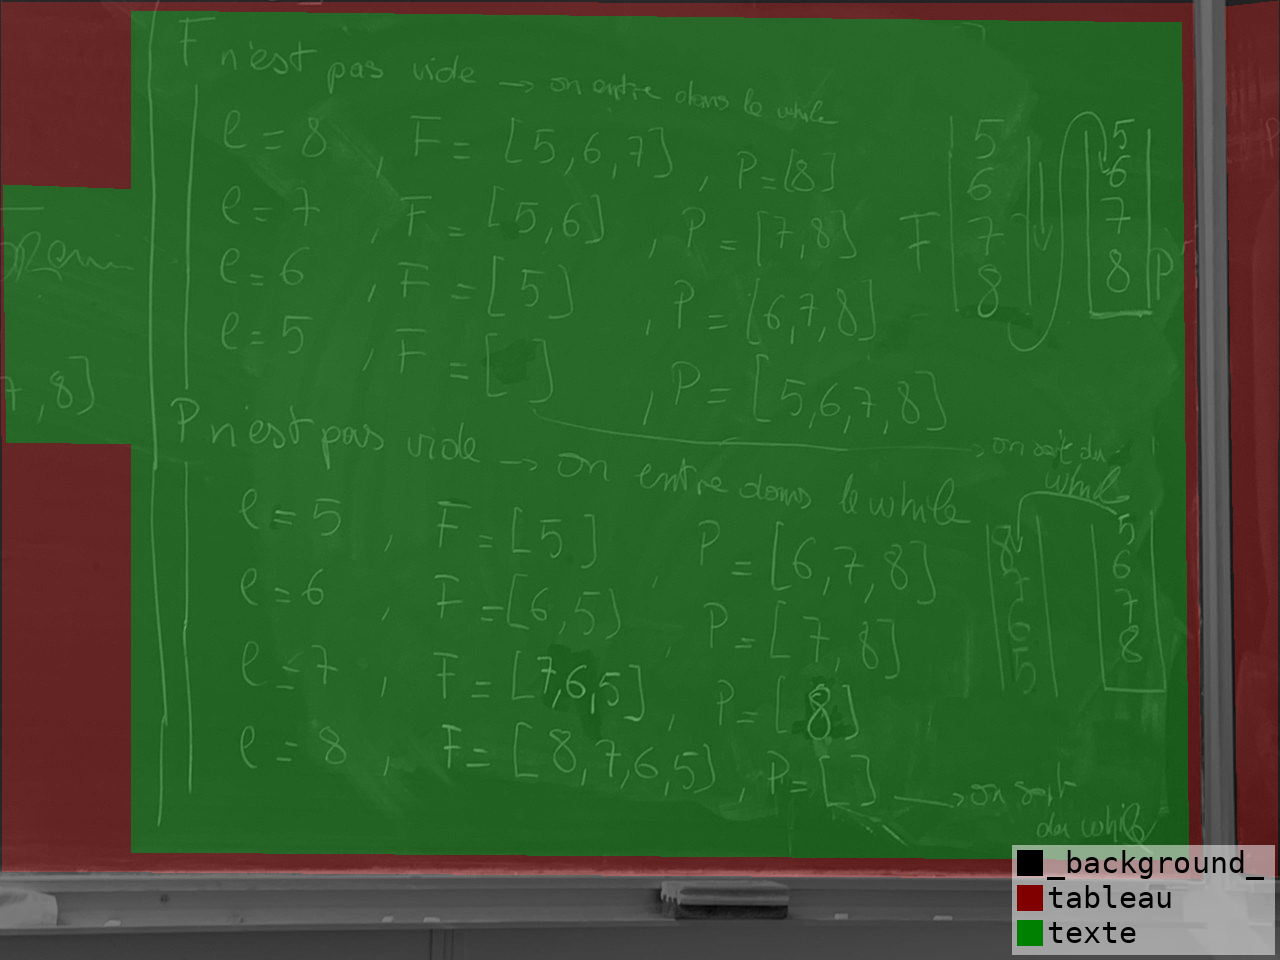 F n'est pas vide → on entre dans le while
e = 8 , F = [5,6,7] , P = [8]
e = 7 , F = [5,6] , P = [7,8]
e = 6 , F = [5] , P = [6,7,8]
e = 5 , F = [ ] , P = [5,6,7,8]
→ on sort du while
F
5
6
7
8
5
6
7
8
P
7,8]
P n'est pas vide → on entre dans le while
e = 5 , F = [5] , P = [6,7,8]
e = 6 , F = [6,5] , P = [7,8]
e = 7 , F = [7,6,5] , P = [8]
e = 8 , F = [8,7,6,5] , P = [ ] → on sort du while
8
7
6
5
5
6
7
8
_background_
tableau
texte